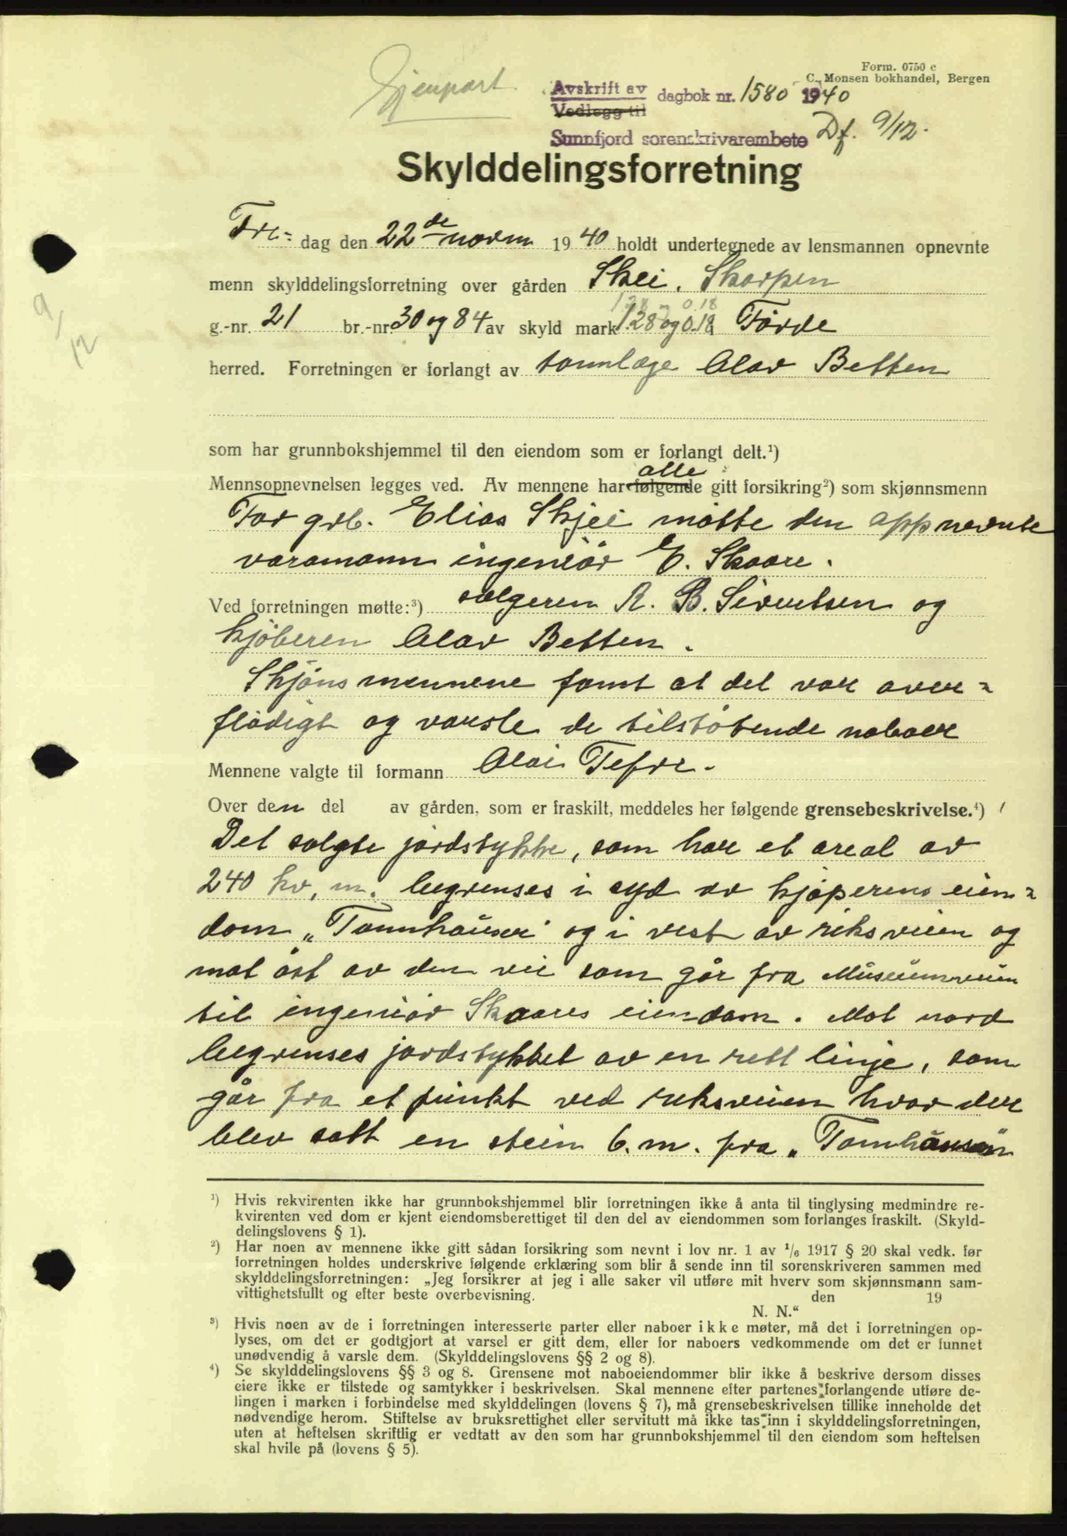 Form. 0750 c
C. Monsen bokhandel, Bergen
Gjenpart
Avskrift av
Vedlegg til
dagbok nr. 1580 1940
Sunnfjord sorenskrivarembete
Df. 9/12.
Skylddelingsforretning
Fre= dag den 22de novm 1940 holdt undertegnede av lensmannen opnevnte
menn skylddelingsforretning over gården Skei, Skorpen
1.28 0,18
g.-nr. 21 br.-nr 30 og 84 av skyld mark 1,28 og 0.18 i Förde
9/12
herred. Forretningen er forlangt av tannlæge Olav Betten
som har grunnbokshjemmel til den eiendom som er forlangt delt.¹)
alle
Mennsopnevnelsen legges ved. Av mennene har følgende gitt forsikring²) som skjønnsmenn
For grb. Elias Skjei møtte den oppnevnte
varamann ingeniör E. Skaare.
Ved forretningen møtte:³) selgeren A. B. Sivertsen og
kjöberen Olav Betten.
Skjöns mennene fant at det var over=
flödigt og varsle de tilstötende naboer
Mennene valgte til formann Olai Tefre.
Over den del av gården, som er fraskilt, meddeles her følgende grensebeskrivelse.⁴)
Det solgte jordstykke, som har et areal av
240 kv. m. begrenses i syd av kjöperens eien=
dom „Tannhäuser" og i vest av riksveien og
mot öst av den vei som går fra Museumsveien
til ingeniör Skaares eiendom. Mot nord
begrenses jordstykket av en rett linje, som
går fra et punkt ved riksveien hvor der
blev satt en stein 6. m. fra „Tannhäuser"
¹) Hvis rekvirenten ikke har grunnbokshjemmel blir forretningen ikke å anta til tinglysing medmindre re-
kvirenten ved dom er kjent eiendomsberettiget til den del av eiendommen som forlanges fraskilt. (Skyld-
delingslovens § 1).
²) Har noen av mennene ikke gitt sådan forsikring som nevnt i lov nr. 1 av ¹/₆ 1917 § 20 skal vedk. før
forretningen holdes underskrive følgende erklæring som blir å sende inn til sorenskriveren sammen med
skylddelingsforretningen: „Jeg forsikrer at jeg i alle saker vil utføre mit hverv som skjønnsmann sam-
vittighetsfullt og efter beste overbevisning. den 19
N. N.“
³) Hvis noen av de i forretningen interesserte parter eller naboer ikke møter, må det i forretningen op-
lyses, om det er godtgjort at varsel er gitt dem, eller for naboers vedkommende om det er funnet
unødvendig å varsle dem. (Skylddelingslovens §§ 2 og 8).
⁴) Se skylddelingslovens §§ 3 og 8. Grensene mot naboeiendommer blir ikke å beskrive dersom disses
eiere ikke er tilstede og samtykker i beskrivelsen. Skal mennene efter partenes forlangende utføre de-
lingen i marken i forbindelse med skylddelingen (lovens § 7), må grensebeskrivelsen tillike inneholde det
nødvendige herom. Stiftelse av bruksrettighet eller servitutt må ikke tas inn i skylddelingsforretningen,
uten at heftelsen skriftlig er vedtatt av den som har grunnbokshjemmel til den eiendom som heftelsen
skal hvile på (lovens § 5).